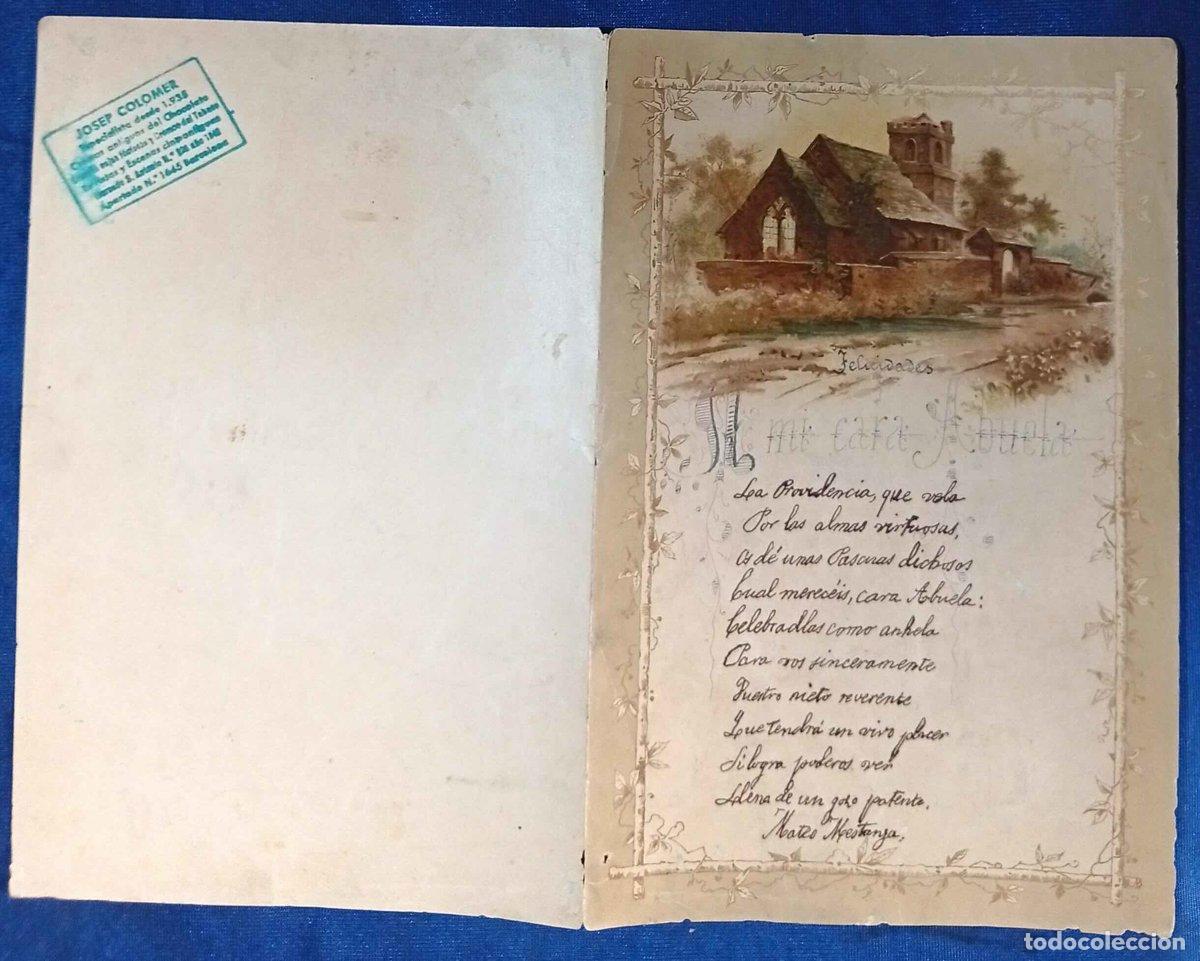 JOSEP COLOMER
Especialista desde 1.938
antiguos del Chocolate
Cromos del Tabaco
y Escenas
S. Antonio N.°
Apartado N.° 1645 Barcelona
Felicidades
A mi cara Abuela
La Providencia, que vela
Por las almas virtuosas,
Os dé unas Pascuas dichosos
Cual merecéis, cara Abuela:
Celebradlas como anhela
Para vos sinceramente
Vuestro nieto reverente
Que tendrá un vivo placer
Si logra poderos ver
Llena de un gozo patente.
Mateo Mestanza,
todocoleccion